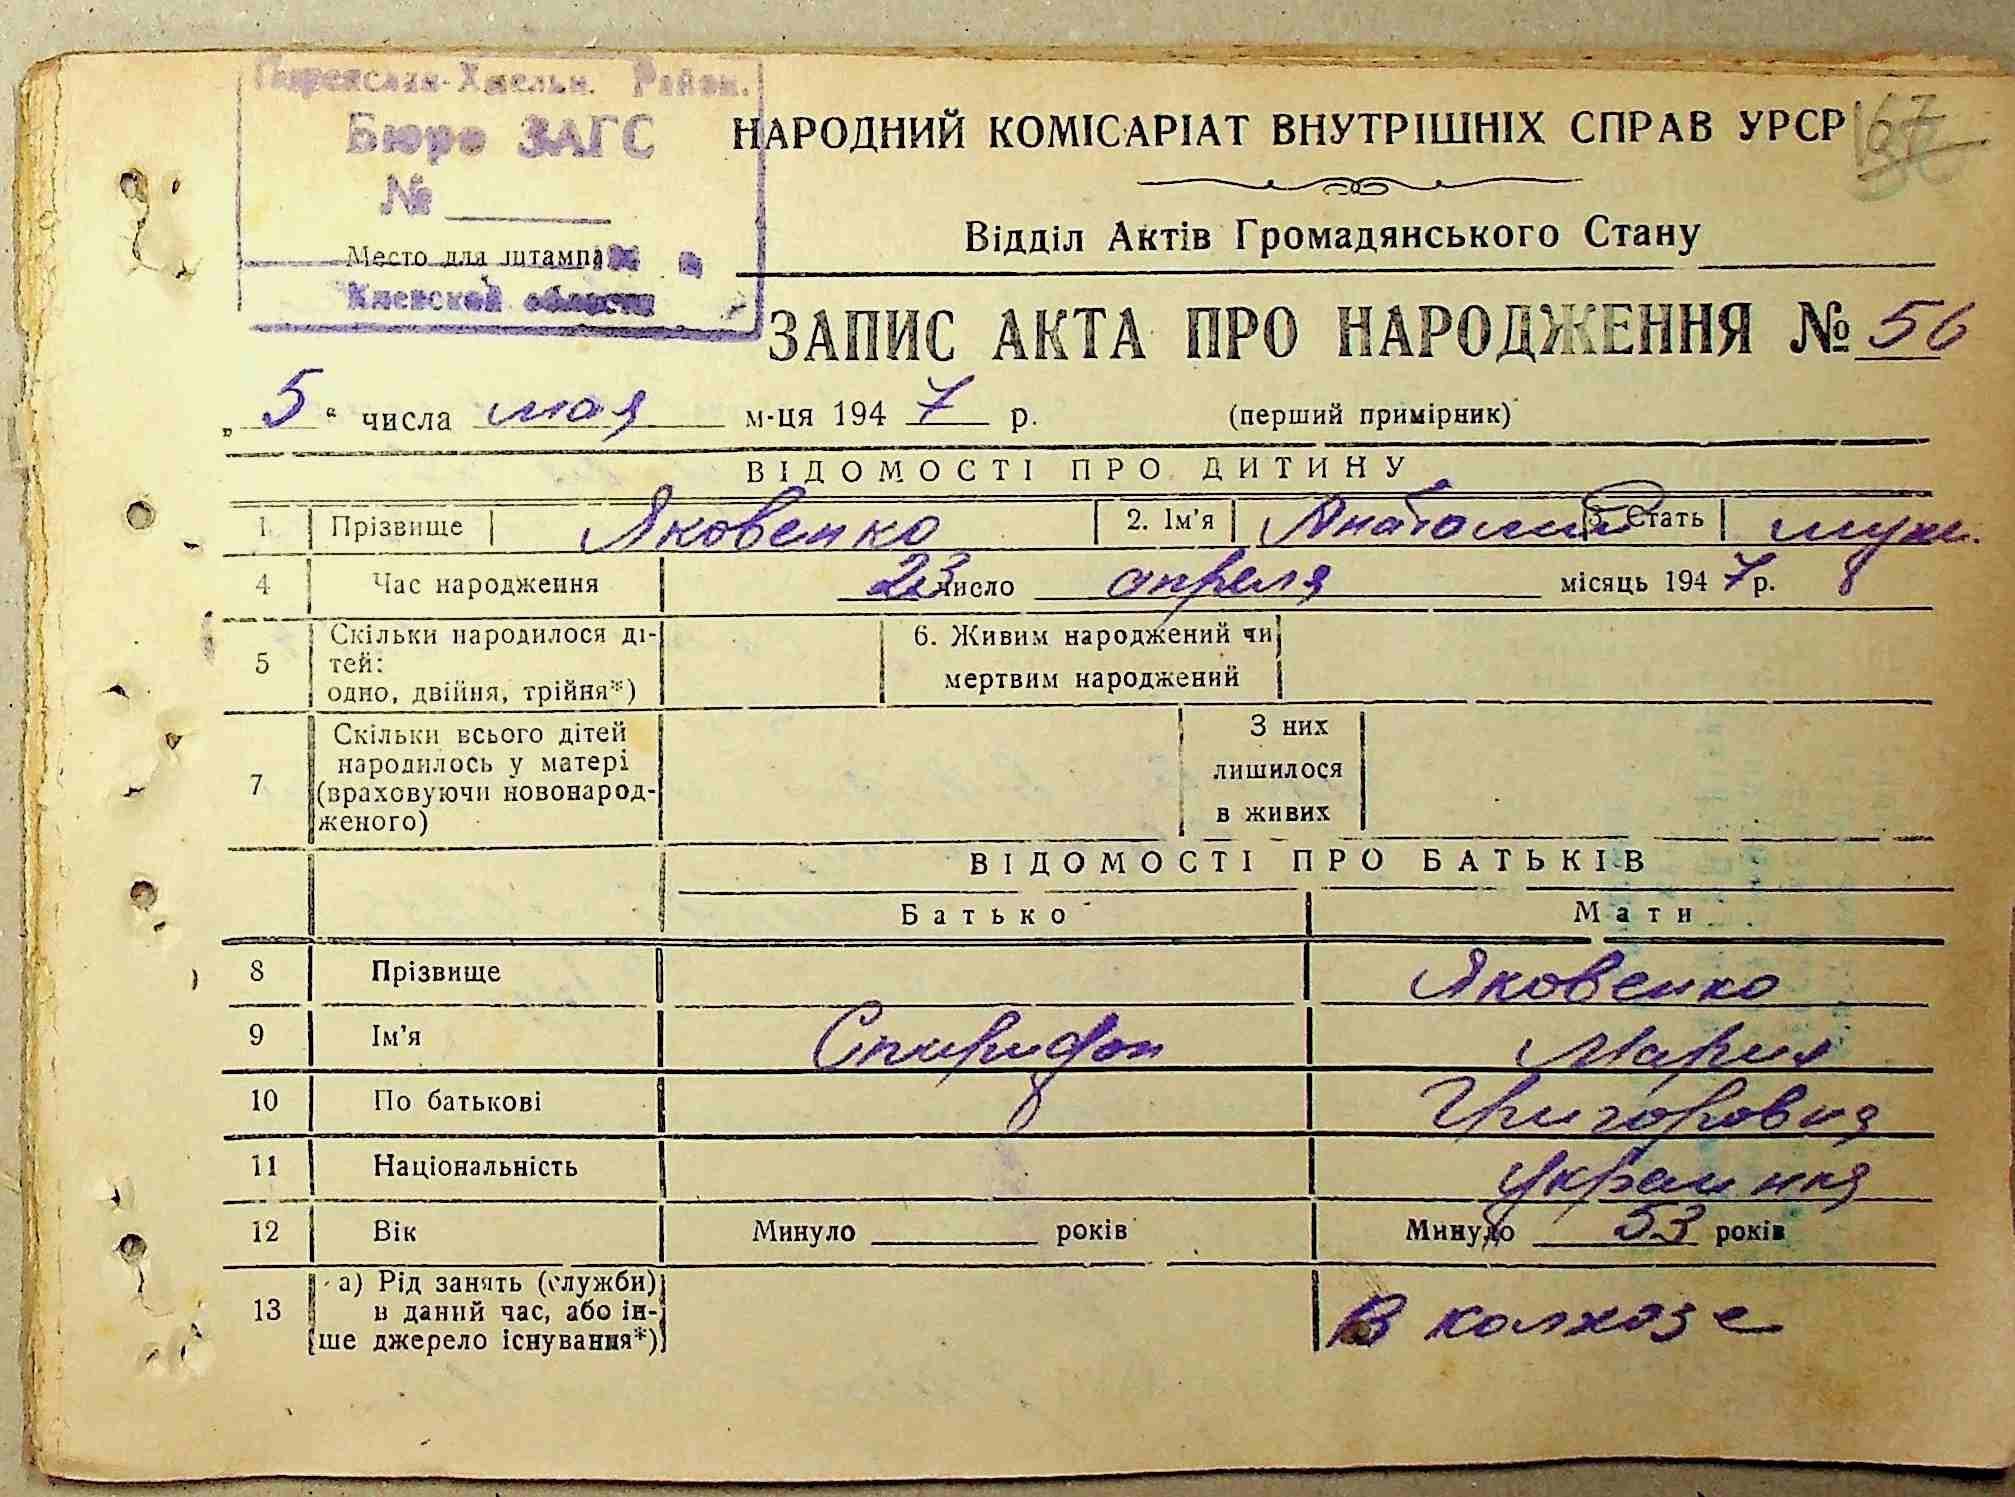 Переяслав-Хмельн. Район.
Бюро ЗАГС
№
Место для штампа
Киевской области
НАРОДНИЙ КОМІСАРІАТ ВНУТРІШНІХ СПРАВ УРСР
Відділ Актів Громадянського Стану
ЗАПИС АКТА ПРО НАРОДЖЕННЯ № 56
„ 5 “ числа мая м-ця 194 7 р. (перший примірник)
ВІДОМОСТІ ПРО ДИТИНУ
1 Прізвище Яковенко 2. Ім'я Анатолий 3. Стать муж.
4 Час народження 23 число апреля місяць 194 7 р.
5 Скільки народилося ді-
тей:
одно, двійня, трійня*)
6. Живим народжений чи
мертвим народжений
7 Скільки всього дітей
народилось у матері
(враховуючи новонарод-
женого)
З них
лишилося
в живих
ВІДОМОСТІ ПРО БАТЬКІВ
Батько Мати
8 Прізвище Яковенко
9 Ім'я Спиридон Мария
10 По батькові Григоровна
11 Національність украинка
12 Вік Минуло років Минуло 53 років
13 а) Рід занять (служби)
в даний час, або ін-
ше джерело існування*)
В колхозе